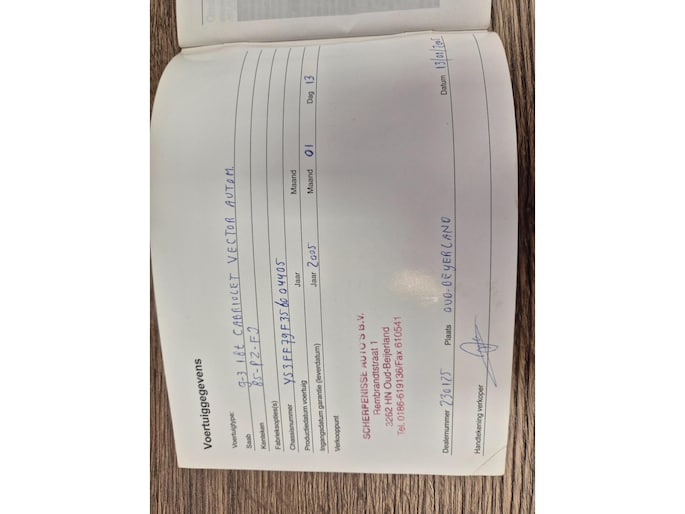 Voertuiggegevens
Voertuigtype:
Saab 9-3 1.8t CABRIOLET VECTOR AUTOM.
Kenteken 85-PZ-FJ
Fabrieksopties(s)
Chassisnummer YS3FF79F356004405
Productiedatum voertuig Jaar Maand
Ingangsdatum garantie (leverdatum) Jaar 2005 Maand 01 Dag 13
Verkooppunt
SCHERPENISSE AUTO'S B.V.
Rembrandtstraat 1
3262 HN Oud-Beijerland
Tel. 0186-619136/Fax 610541
Dealernummer 230175 Plaats OUD-BEYERLAND Datum 13/01/2005
Handtekening verkoper